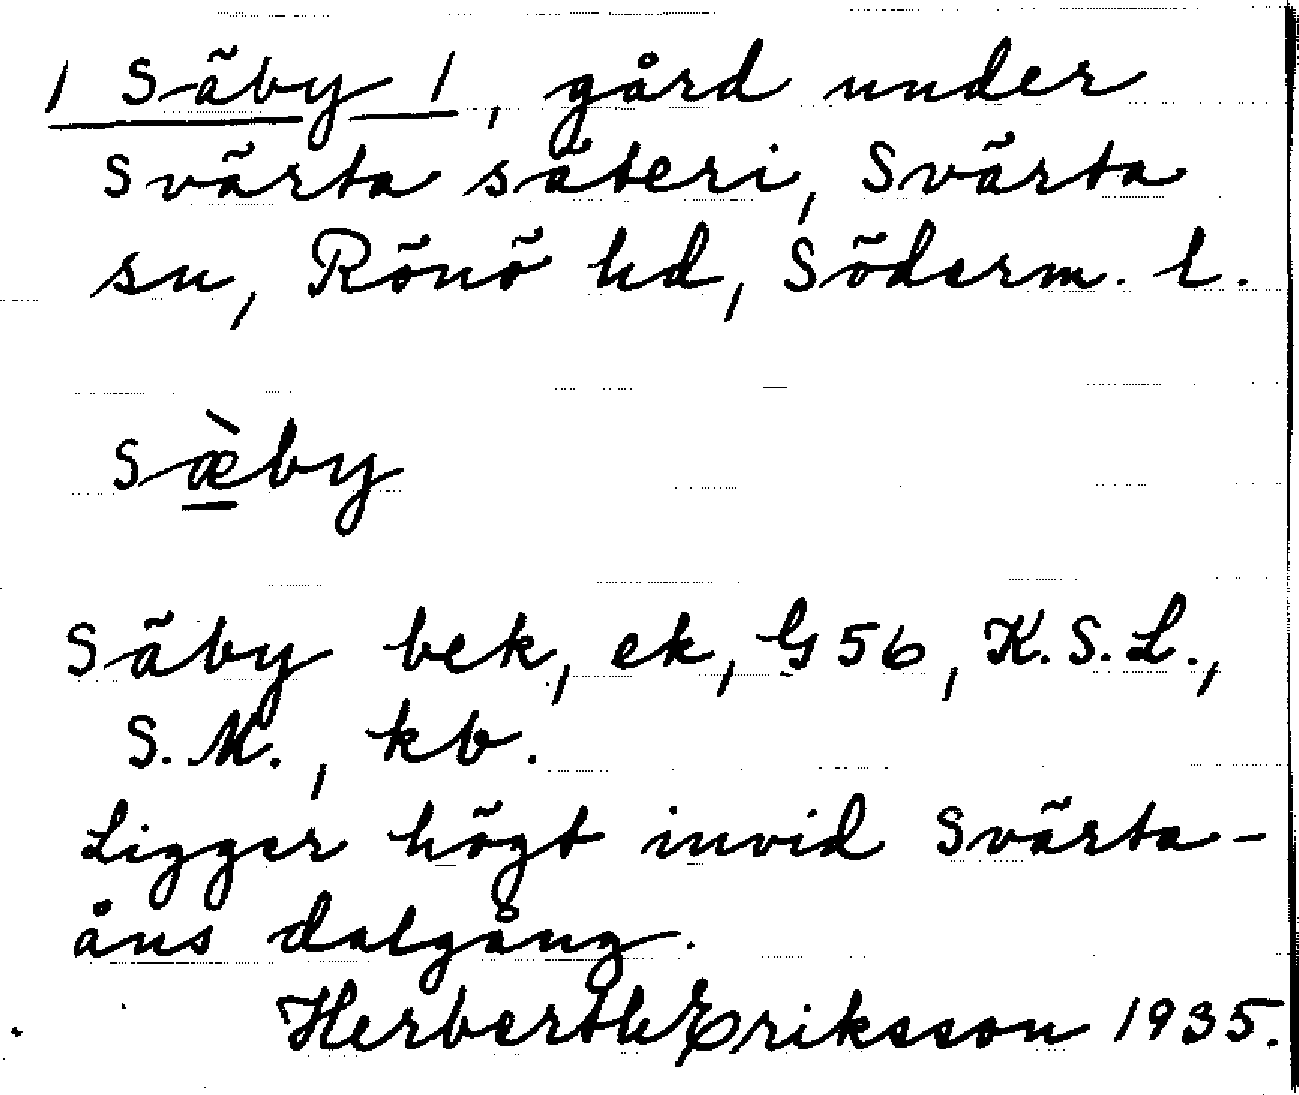 1 Säby 1, gård under
Svärta säteri, Svärta
sn, Rönö hd, Söderm. l.
Sæ̀by
Säby bek, ek, G 56, K.S.L.,
S.M., kb.
Ligger högt invid Svärta-
åns dalgång.
Herberth Eriksson 1935.